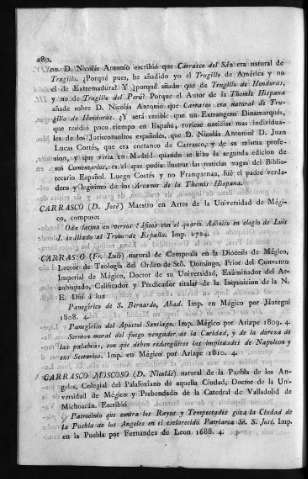 280.
no. D. Nicolás Antonio escribió que Carrasco del Sáz era natural de
Trugillo. ¿Porqué pues, he añadido yo el Trugillo de América y no
el de Extremadura? Y ¿porqué añado que de Trugillo de Honduras,
y no de Trugillo del Perú? Porque el Autor de la Themis Hispana
añade sobre D. Nicolás Antonio que Carrasco era natural de Tru-
gillo de Honduras. ¿Y será creible que un Extrangero Dinamarqués,
que residió poco tiempo en España, tuviese noticias mas individua-
les de los Jurisconsultos españoles, que D. Nicolás Antonio? D. Juan
Lucas Cortés, que era coetaneo de Carrasco, y de su misma profe-
sion, y que vivia en Madrid quando se hizo la segunda edicion de
sus Comentarios, es el que podia ilustrar las noticias vagas del Biblio-
tecario Español. Luego Cortés y no Franquenau, fué el padre verda-
dero y legítimo de los Arcanos de la Themis Hispana.
CARRASCO (D. José) Maestro en Artes de la Universidad de Mégi-
co, compuso:
Oda latina en versos
indiviso al Trono de España. Imp. 1724.
CARRASCO (Fr. Luis) natural de Cempoala en la Diócesis de Mégico,
Lector de Teología del Orden de Sto. Domingo, Prior del Convento
Imperial de Mégico, Doctor de su Universidad, Exâminador del Ar-
zobispado, Calificador y Predicador titular de la Inquisicion de la N.
E. Dió á luz
Panegírico de S. Bernardo, Abad. Imp. en Mégico por Jáuregui
1808. 4.
Panegírico del Apóstol Santiago. Imp. Mégico por Arizpe 1809. 4.
Sermon moral del fuego vengador de la Caridad, y de la dureza de
las palabras, con que deben redargüirse las impiedades de Napoleon y
sus Sectarios. Imp. en Mégico por Arizpe 1810. 4.
CARRASCO MOSCOSO (D. Nicolás) natural de la Puebla de los An-
geles, Colegial del Palafoxiano de aquella Ciudad, Doctor de la Uni-
versidad de Mégico y Prebendado de la Catedral de Valladolid de
Michoacán. Escribió.
Patrocinio que contra los Rayos y Tempestades goza la Ciudad de
la Puebla de los Angeles en el esclarecido Patriarca Sr. S. José. Imp.
en la Puebla por Fernandez de Leon 1688. 4.